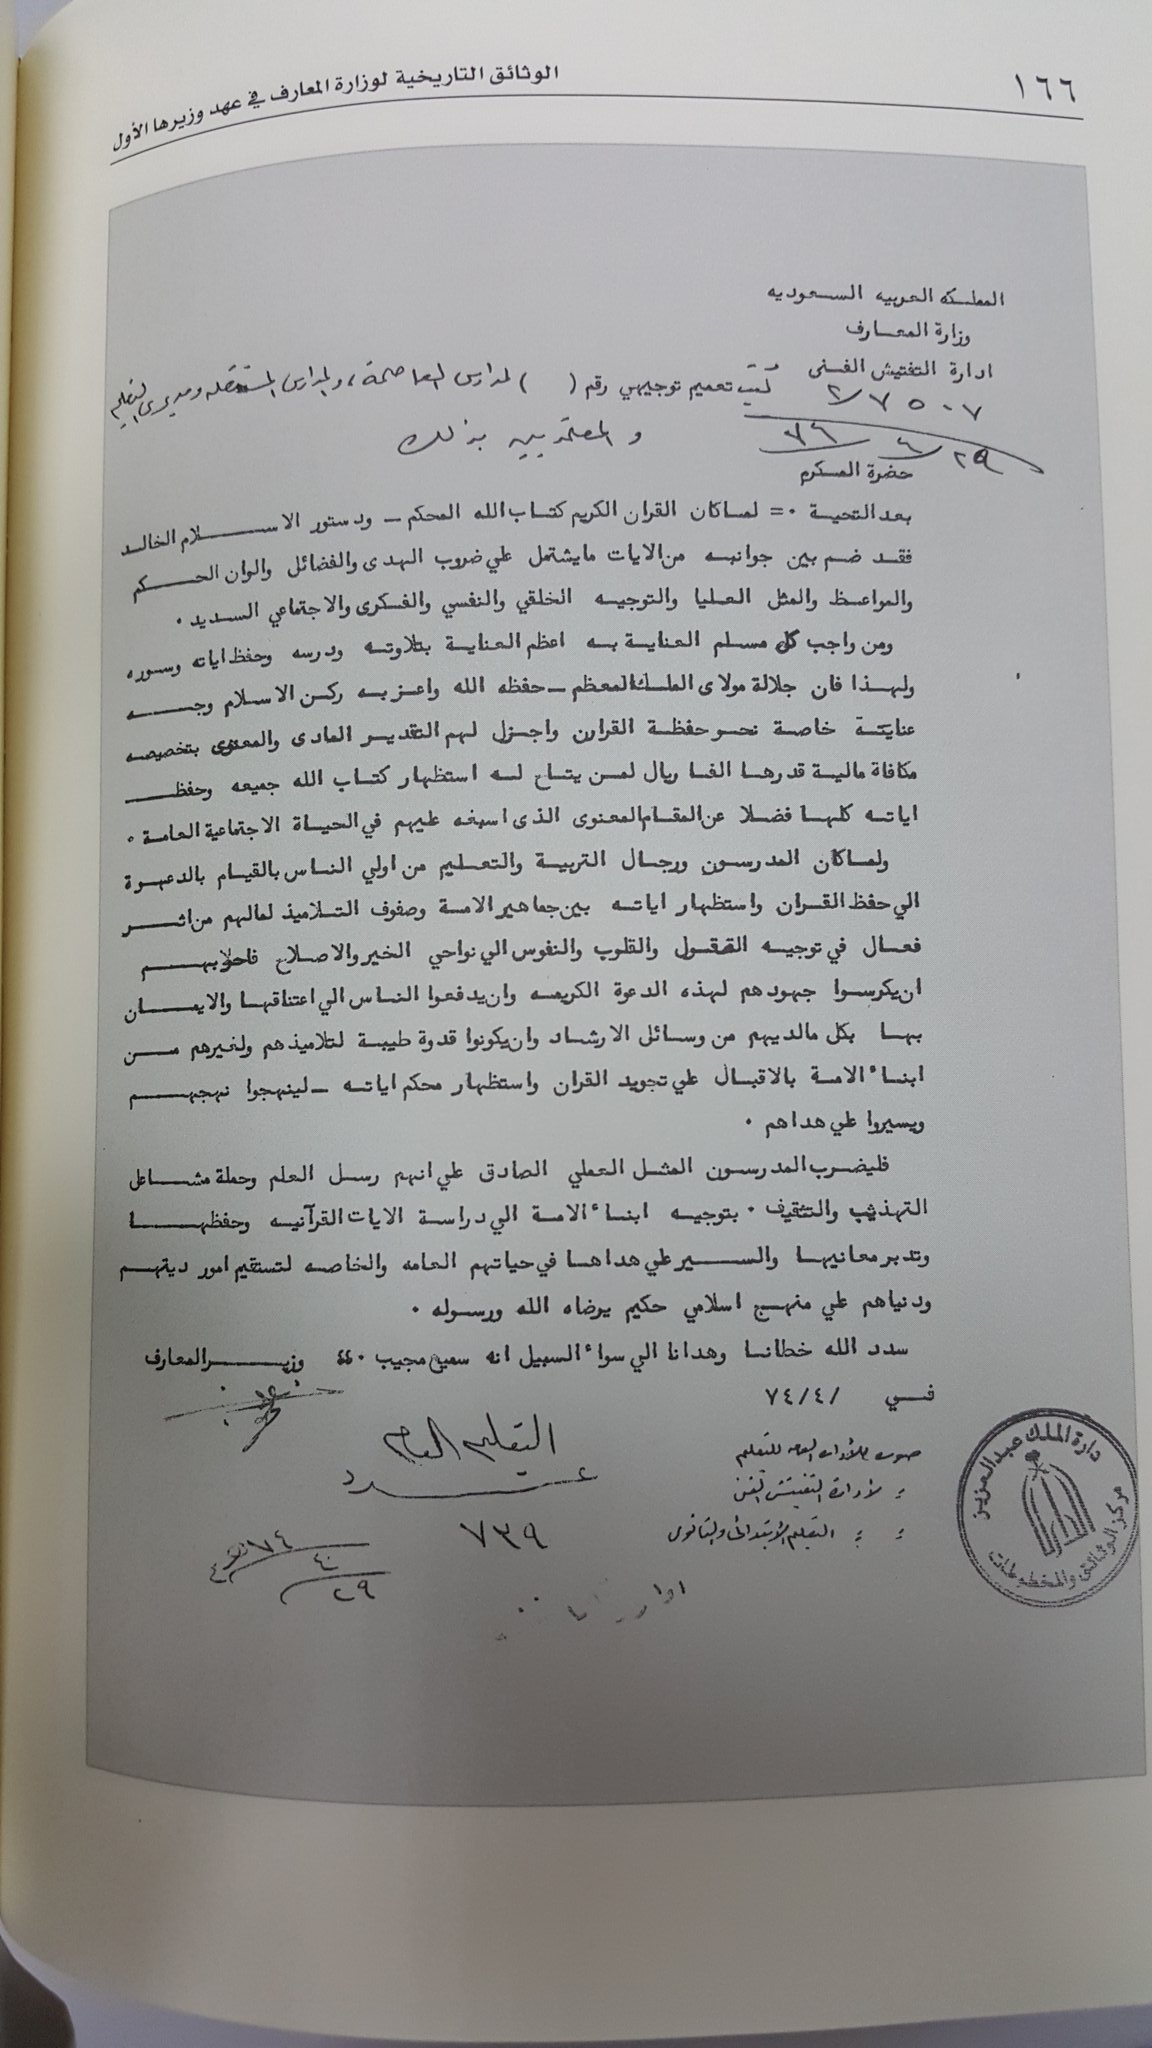 ١٦٦
الوثائق التاريخية لوزارة المعارف في عهد وزيرها الأول
المملكة العربيه السعوديه
وزارة المعارف
ادارة التفتيش الفني
تعميم توجيهي رقم (      ) لمدارس العاصمة، والمدارس المستقله ومديري التعليم
والمعتمديين بذلك
٢/٧٥٠٧
٧٤/٤/٢٩
حضرة المكرم
بعد التحية ٠= لما كان القران الكريم كتاب الله المحكم ــ ودستور الاسلام الخالد
فقد ضم بين جوانبه من الايات ما يشتمل علي ضروب الهدى والفضائل والوان الحكم
والمواعظ والمثل العليا والتوجيه الخلقي والنفسي والفكرى والاجتماعي السديد ٠
ومن واجب كل مسلم العناية به اعظم العناية بتلاوته ودرسه وحفظ اياته وسوره
ولهذا فان جلالة مولاى الملك المعظم ــ حفظه الله واعز به ركن الاسلام وجه
عنايتة خاصة نحو حفظة القرارن واجزل لهم التقدير المادى والمعنوى بتخصيصه
مكافاة مالية قدرها الفا ريال لمن يتاح له استظهار كتاب الله جميعه وحفظ
اياته كلها فضلا عن المقام المعنوى الذى اسبغه عليهم في الحياة الاجتماعية العامة ٠
ولما كان المدرسون ورجال التربية والتعليم من اولي الناس بالقيام بالدعوة
الي حفظ القران واستظهار اياته بين جماهير الامة وصفوف التلاميذ لمالهم من اثر
فعال في توجيه العقول والقلوب والنفوس الي نواحي الخير والاصلاح فاحلابهم
ان يكرسوا جهودهم لهذه الدعوة الكريمه وان يدفعوا الناس الي اعتناقها والايمان
بها بكل مالديهم من وسائل الارشاد وان يكونوا قدوة طيبة لتلاميذهم ولغيرهم من
ابناء الامة بالاقبال علي تجويد القران واستظهار محكم اياته ــ لينهجوا نهجهم
ويسيروا علي هداهم ٠
فليضرب المدرسون المثل العملي الصادق علي انهم رسل العلم وحملة مشاعل
التهذيب والتثقيف ٠ بتوجيه ابناء الامة الي دراسة الايات القرآنيه وحفظها
وتدبر معانيها والسير علي هداها في حياتهم العامه والخاصه لتستقيم امور ديتهم
ودنياهم علي منهج اسلامي حكيم يرضاه الله ورسوله ٠
سدد الله خطانا وهدانا الي سواء السبيل انه سميع مجيب ٠ وزير المعارف
في     /٧٤/٤
التعليم العام
صورة للأدارة العامه للتعليم
لأدارة التفتيش الفني
التعليم الأبتدائي والثانوى
عدد
٧٣٩
٧٤/٤/٢٩
دارة الملك عبدالعزيز
مركز الوثائق والمخطوطات